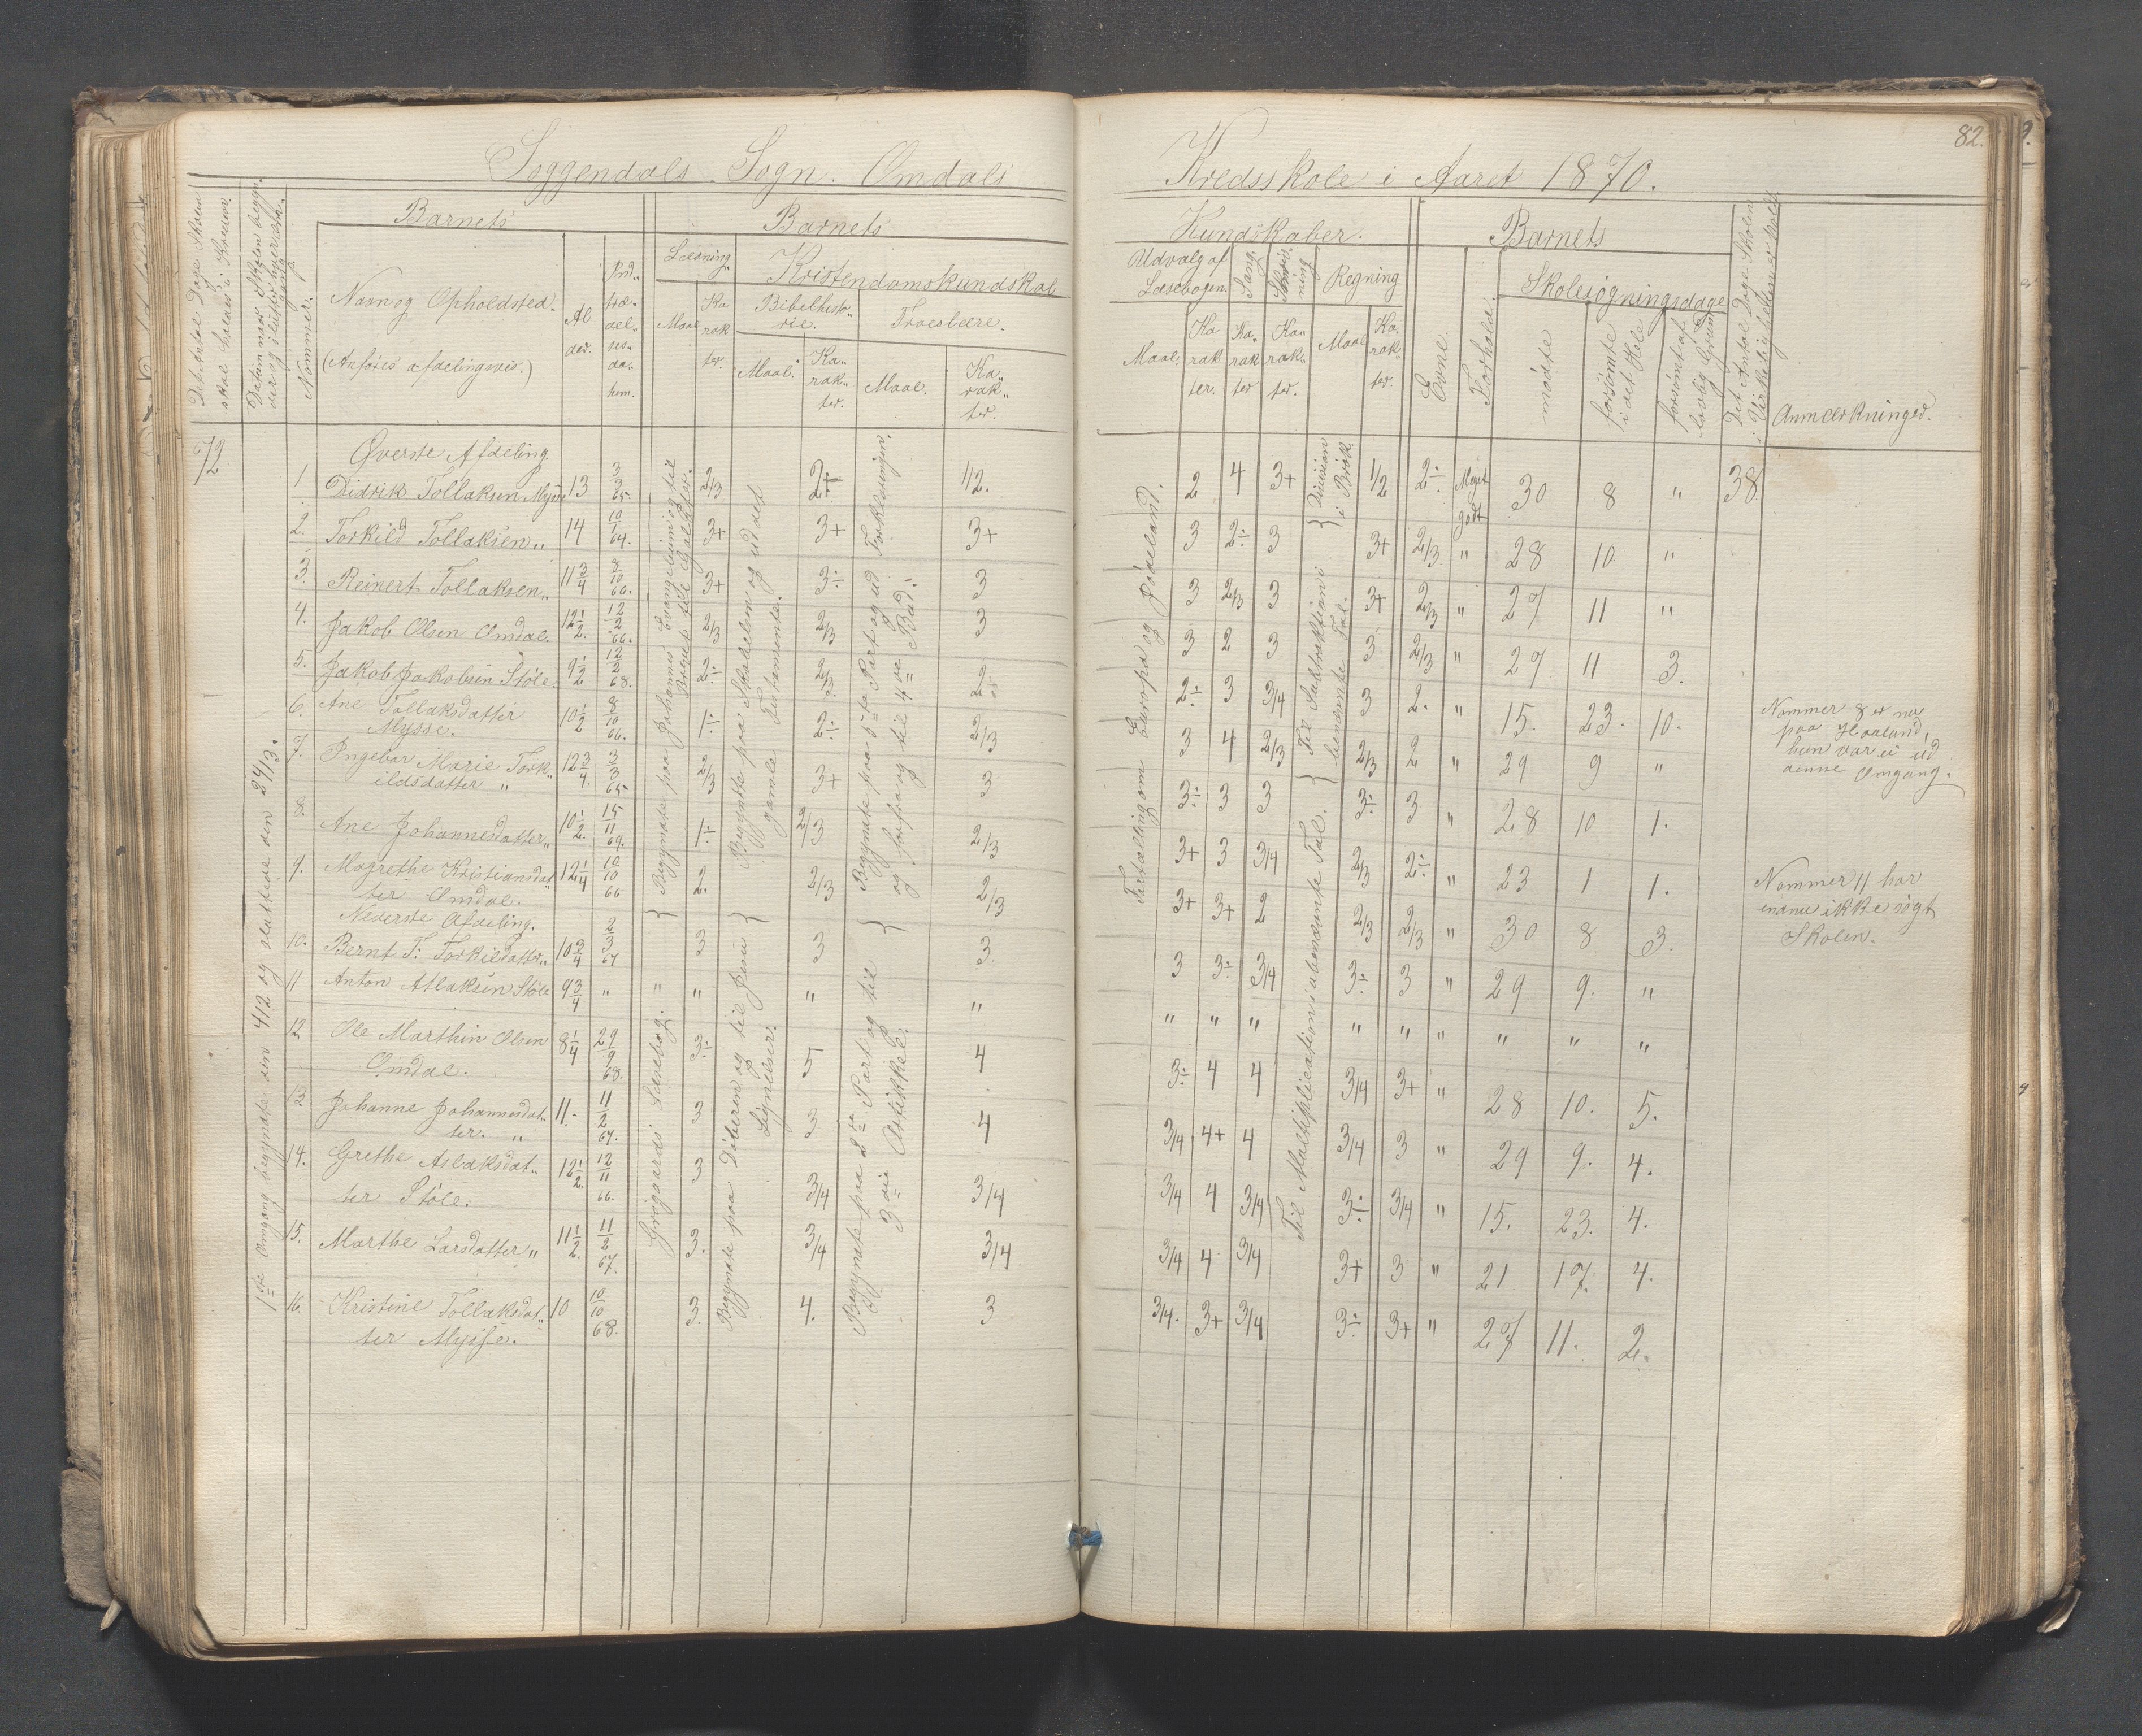 82.
Soggendals Sogn. Omdals Kredsskole i Aaret 1870.
Det Antal Dage Skolen skal holdes i Kredsen.
Datum naar Skolen begyn-
der og slutter hver
Nommer.
Barnets
Navn og Opholdsted.
(Anføres afdelingsvis.)
Al
der.
Ind„
træ„
del„
ses„
da„
tum.
Barnets
Læsning„
Maal
Ka
rak
ter.
Kristendomskundskab
Bibelhisto„
rie.
Maal.
Ka„
rak„
ter.
Troeslære.
Maal.
Ka„
rak„
ter.
Kundskaber.
Udvalg af
Læsebogen.
Maal.
Ka
rak
ter.
Sang.
Ka„
rak
ter
Skriv„
ning
Ka„
rak„
ter.
Regning
Maal
Ka„
rak„
ter.
Barnets
Evne.
Forhold.
Skolesøgningsdage
mødte
forsømte
i det Hele
forsømt af
lovlig Grund
Det Antal Dage Skolen
i Virkeligheden er holdt
Anmærkninger.
72
1ste Omgang begyndte den 4/12 og sluttede den 24/3.
Øverste Afdeling.
1 Didrik Tollaksen Mysse 13 3/3 65. 2/3 2÷ 1/2. 2 4 3+ 1/2 2÷ Meget godt 30 8 „ 38
2. Torkild Tollaksen „ 14 10/1 64. 3+ 3+ 3+ 3 2÷ 3 3+ 2/3 „ 28 10 „
3. Reinert Tollaksen „ 11 3/4 8/10 66. 3+ 3÷ 3 3 2/3 3 3+ 2/3 „ 27 11 „
4. Jakob Olsen Omdal. 12 1/2. 12/2 66. 2/3 2/3 3 3 2 3 3 2/3 „ 27 11 3.
5. Jakob Jakobsen Støle. 9 1/2 12/2 68. 2÷ 2/3 2÷ 2÷ 3 3/4 3 2. „ 15. 23. 10.
6. Ane Tollaksdatter
Mysse. 10 1/2 8/10 66. 1÷ 2÷ 2/3 3 4 2/3 2/3 2 „ 29 9 „
7. Ingebor Marie Tork„
ildsdatter „ 12 3/4. 3/3 65. 2/3 3+ 3 3÷ 3 3 3÷ 3 „ 28 10 1.
8. Ane Johannesdatter „ 10 1/2. 15/11 69. 1÷ 2/3 2/3 3+ 3 3/4 2/3 2÷ „ 23 1 1.
9. Magrethe Kristiansdat„
ter Omdal. 12 1/4 10/10 66 2. 2/3 2/3 3+ 3+ 2 2/3 2/3 „ 30 8 3.
Nederste Afdeling.
10. Bernt T. Torkildatter „ 10 3/4 2/3 67 3 3 3. 3 3÷ 3/4 3÷ 3 „ 29 9. „
11 Anton Atlaksen Støle 9 3/4 „ „ „ „ „ „ „ „ „ „ „ „ „ „
12 Ole Marthin Olsen
Omdal. 8 1/4 29/9 68. 3÷ 5 4 3÷ 4 4 3/4 3+ „ 28 10. 5.
13. Johanne Johannesdat„
ter. „ 11. 11/2 67. 3 3 4 3/4 4+ 4 3/4 3 „ 29 9. 4.
14. Grethe Aslaksdat„
ter Støle. 12 1/2. 12/11 66. 3 3/4 3/4 3/4 4 3/4 3÷ 3/4 „ 15. 23. 4.
15. Marthe Larsdatter „ 11 1/2. 11/2 67. 3. 3/4 3/4 3/4 4 3/4 3+ 3 „ 21 17. 4.
16. Kristine Tollaksdat„
ter Mysse. 10 10/10 68. 3. 4. 3 3/4. 3+ 3/4 3÷ 3+ „ 27 11. 2.
Begyndte paa Johannes Evangelium og til
Brevet til Galater.
Grøgaards Læsebog.
Begyndte paa Skabelsen og ud det
gamle Testamente.
Begyndte paa Døberen og til Jesu
Lignelser.
Begyndte paa 5te Part og ud Forklaringen.
og forfra og til 4de Bud.
Begyndte paa 2den Part og til
3die Artikkel.
Fortælling om Europa og Jødeland.
Division
i Brøk.
Til Subtraktion i
benævnte Tal.
Til Multiplication i ubenævnte Tal.
Nommer 8 er nu
paa Haaland,
hun var ei ud
denne Omgang.
Nommer 11 har
endnu ikke søgt
Skolen.